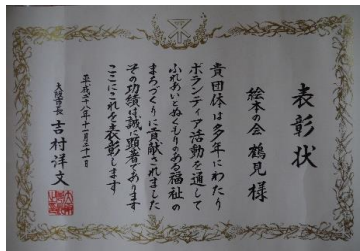 表彰状
絵本の会 鶴見 様
貴団体は多年にわたり
ボランティア活動を通して
ふれあいとぬくもりのある福祉の
まちづくりに貢献されました
その功績は誠に顕著であります
ここにこれを表彰します
平成二十八年十一月二十一日
大阪市長 吉村洋文